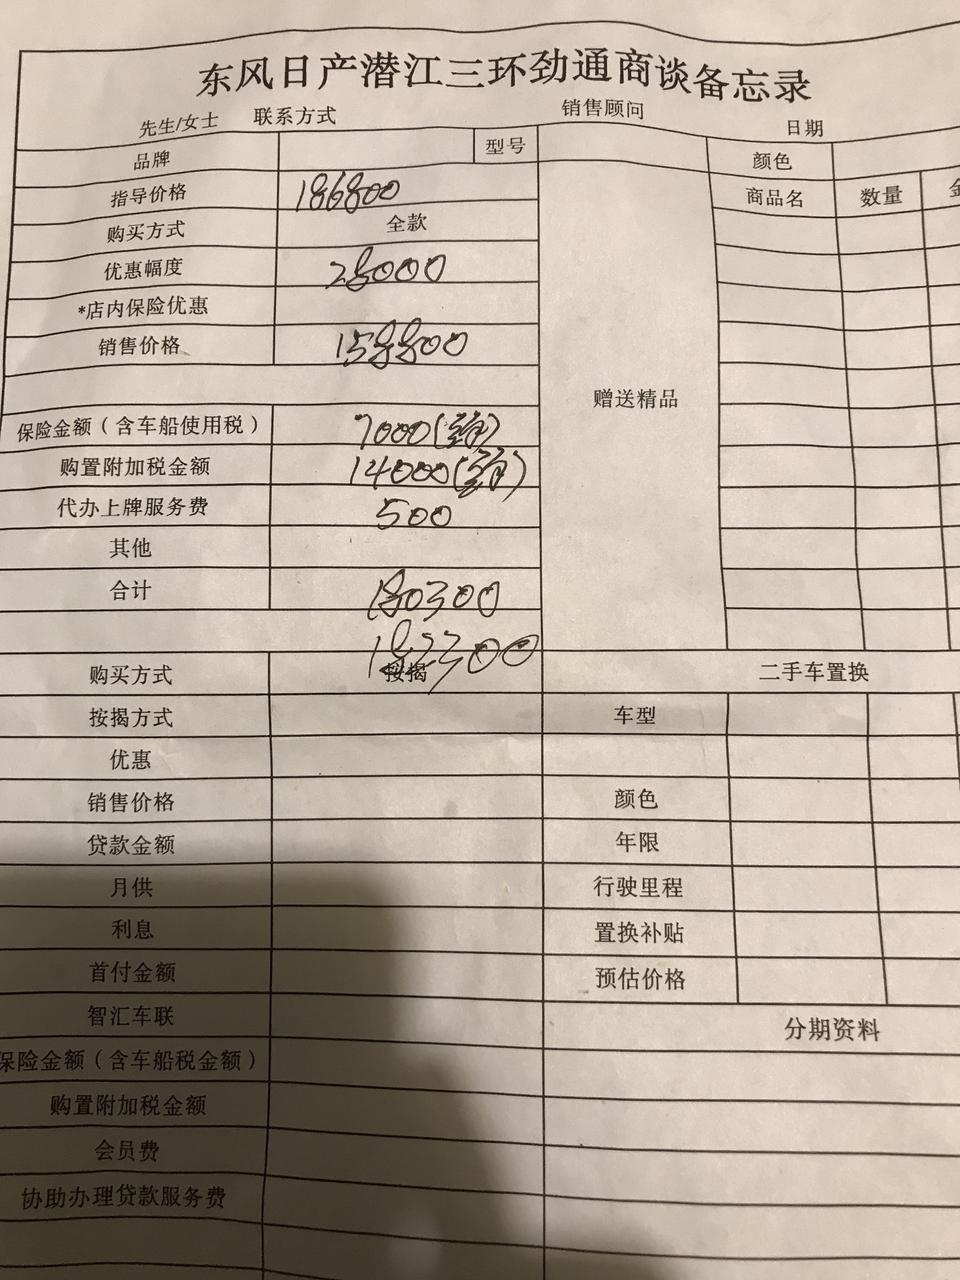 东风日产潜江三环劲通商谈备忘录
先生/女士 联系方式 销售顾问 日期
品牌 型号 颜色
指导价格 186800 商品名 数量
购买方式 全款
优惠幅度 28000
*店内保险优惠
销售价格 158800
赠送精品
保险金额（含车船使用税） 7000
购置附加税金额 14000
代办上牌服务费 500
其他
合计 180300
购买方式 按揭 二手车置换
按揭方式 车型
优惠
销售价格 颜色
贷款金额 年限
月供 行驶里程
利息 置换补贴
首付金额 预估价格
智汇车联 分期资料
保险金额（含车船税金额）
购置附加税金额
会员费
协助办理贷款服务费